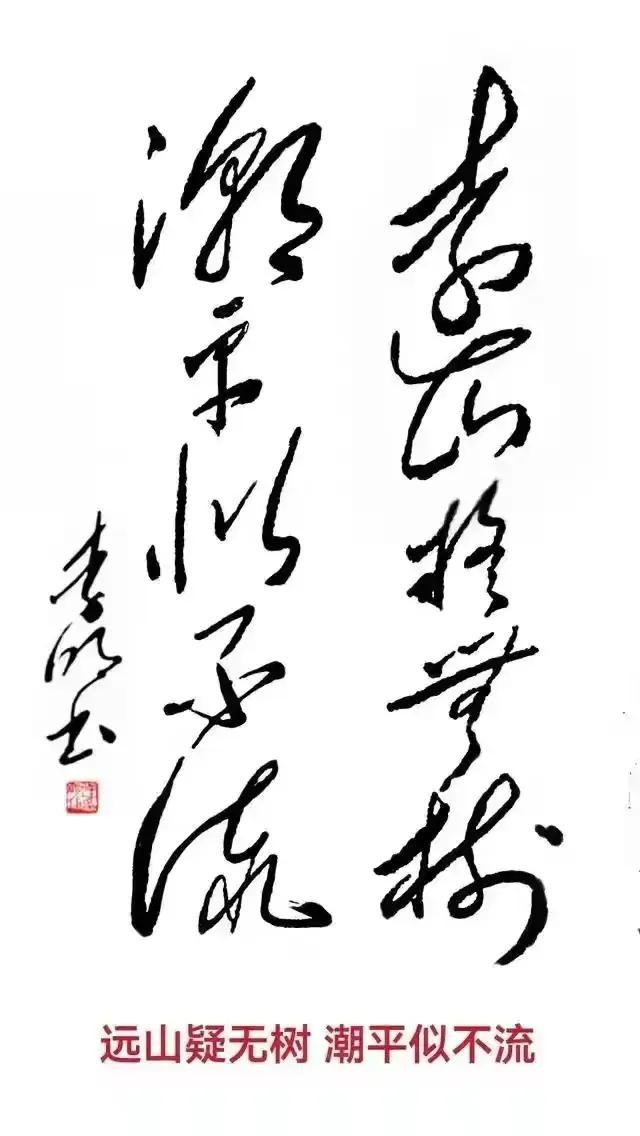 远山疑無树
潮平似不流
李明书
远山疑无树 潮平似不流